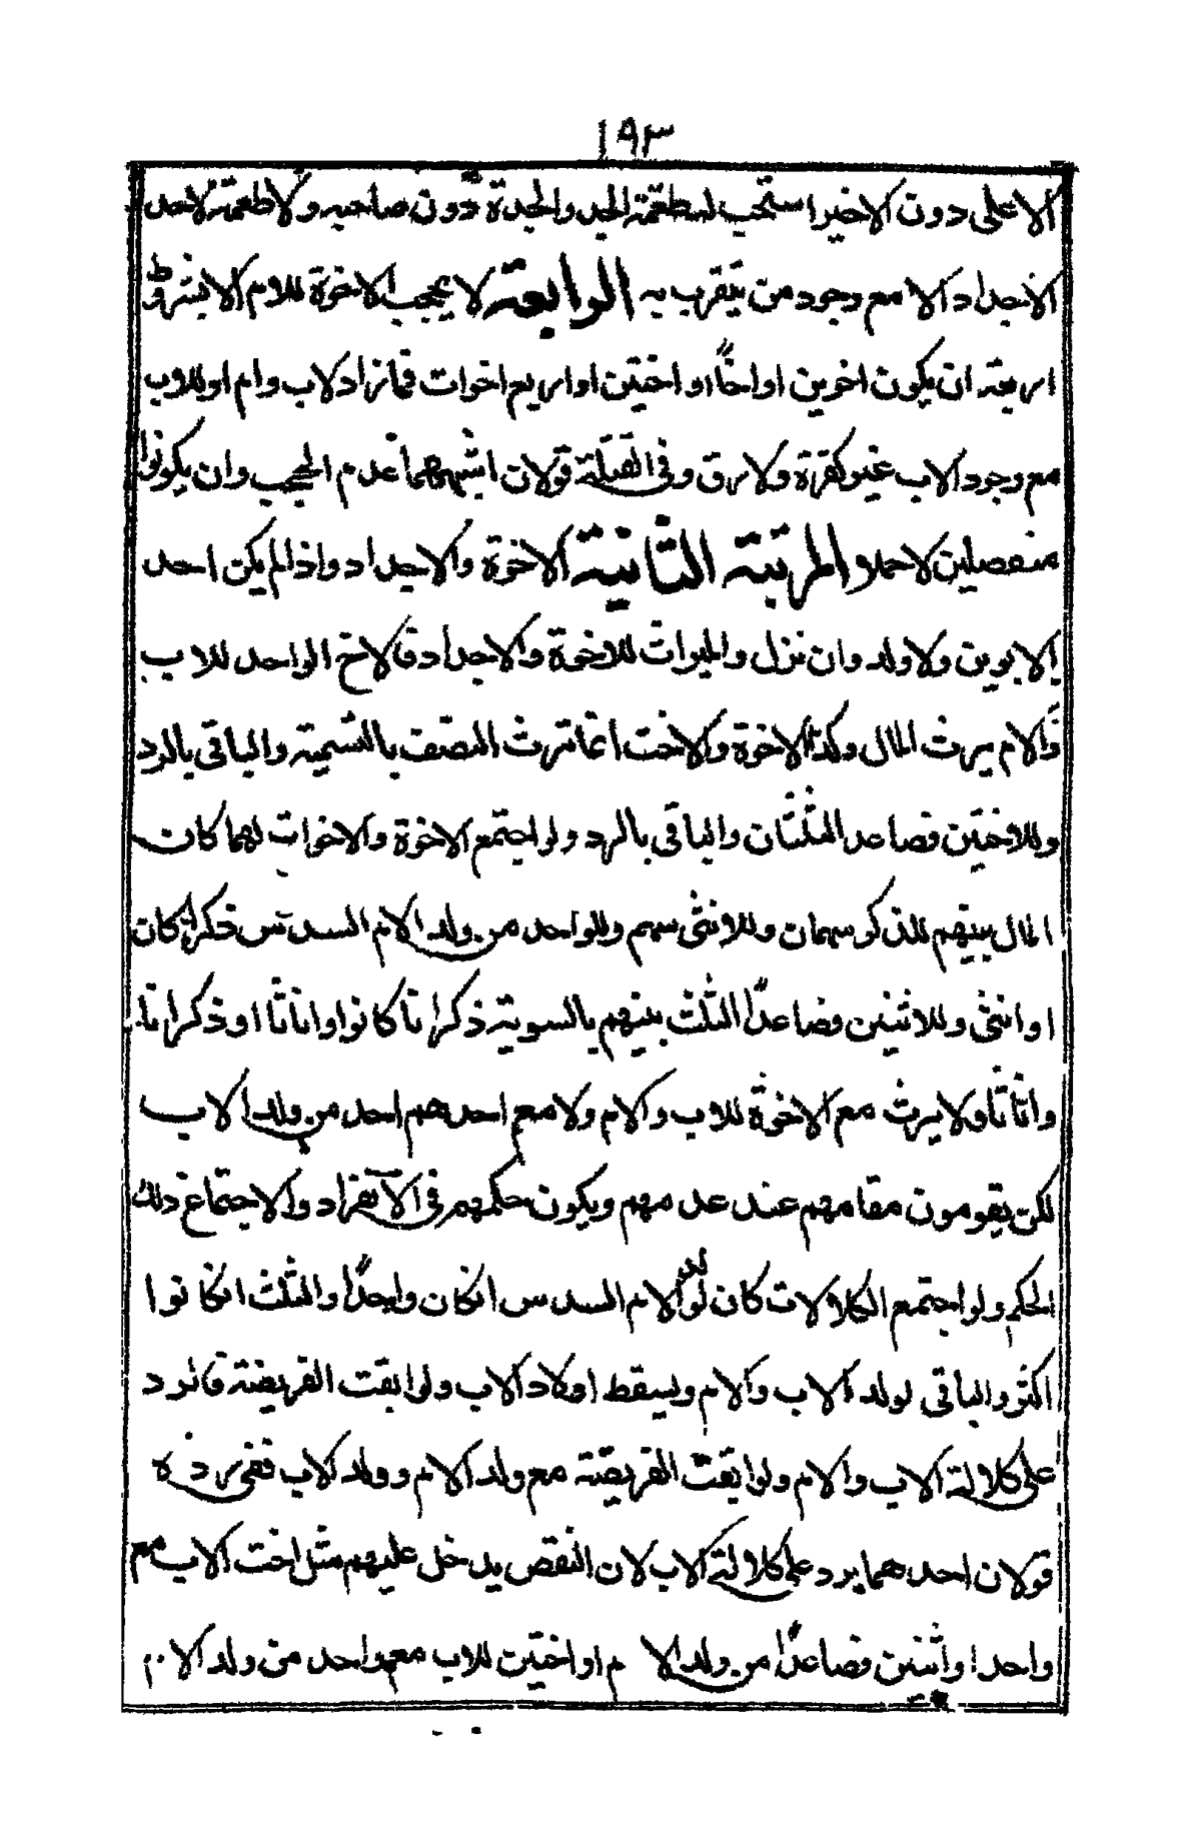 ١٩٣
الاعلى دون الاخير استحب له طعمة الجد والجدة دون صاحبه ولا طعمة لاحد
الاجداد الا مع وجود من يتقرب به الرابعة لا يحجب الاخوة للام الا بشروط
اربعة ان يكون اخوين او اخا واختين او اربع اخوات فما زاد لاب وام او للاب
مع وجود الاب غير كفرة ولا رق وفى القتلة قولان اشبههما عدم الحجب وان يكونوا
منفصلين لا حملا المرتبة الثانية الاخوة والاجداد واذا لم يكن احد
الابوين ولا ولد وان نزل والميراث للاخوة والاجداد فالاخ الواحد للاب
والام يرث المال وكذا الاخوة والاخت انما ترث النصف بالتسمية والباقى بالرد
وللاختين فصاعد الثلثان والباقى بالرد ولو اجتمع الاخوة والاخوات لهما كان
المال بينهم للذكر سهمان وللانثى سهم وللواحد من ولد الام السدس ذكرا كان
او انثى وللاثنين فصاعدا الثلث بينهم بالسوية ذكرانا كانوا او اناثا او ذكرانا
واناثا ولا يرث مع الاخوة للاب والام ولا مع احدهم احد من ولد الاب
لكن يقومون مقامهم عند عدمهم ويكون حكمهم فى الانفراد والاجتماع ذلك
الحكم ولو اجتمع الكلالات كان لولد الام السدس انكان واحدا والثلث انكانوا
اكثر والباقى لولد الاب والام ويسقط اولاد الاب ولو ابقت الفريضة فالرد
على كلالة الاب والام ولو ابقت الفريضة مع ولد الام وولد الاب ففى رده
قولان احدهما يرد على كلالة الاب لان النقص يدخل عليهم مثل اخت الاب مع
واحد او اثنين فصاعدا من ولد الام او اختين للاب مع واحد من ولد الام